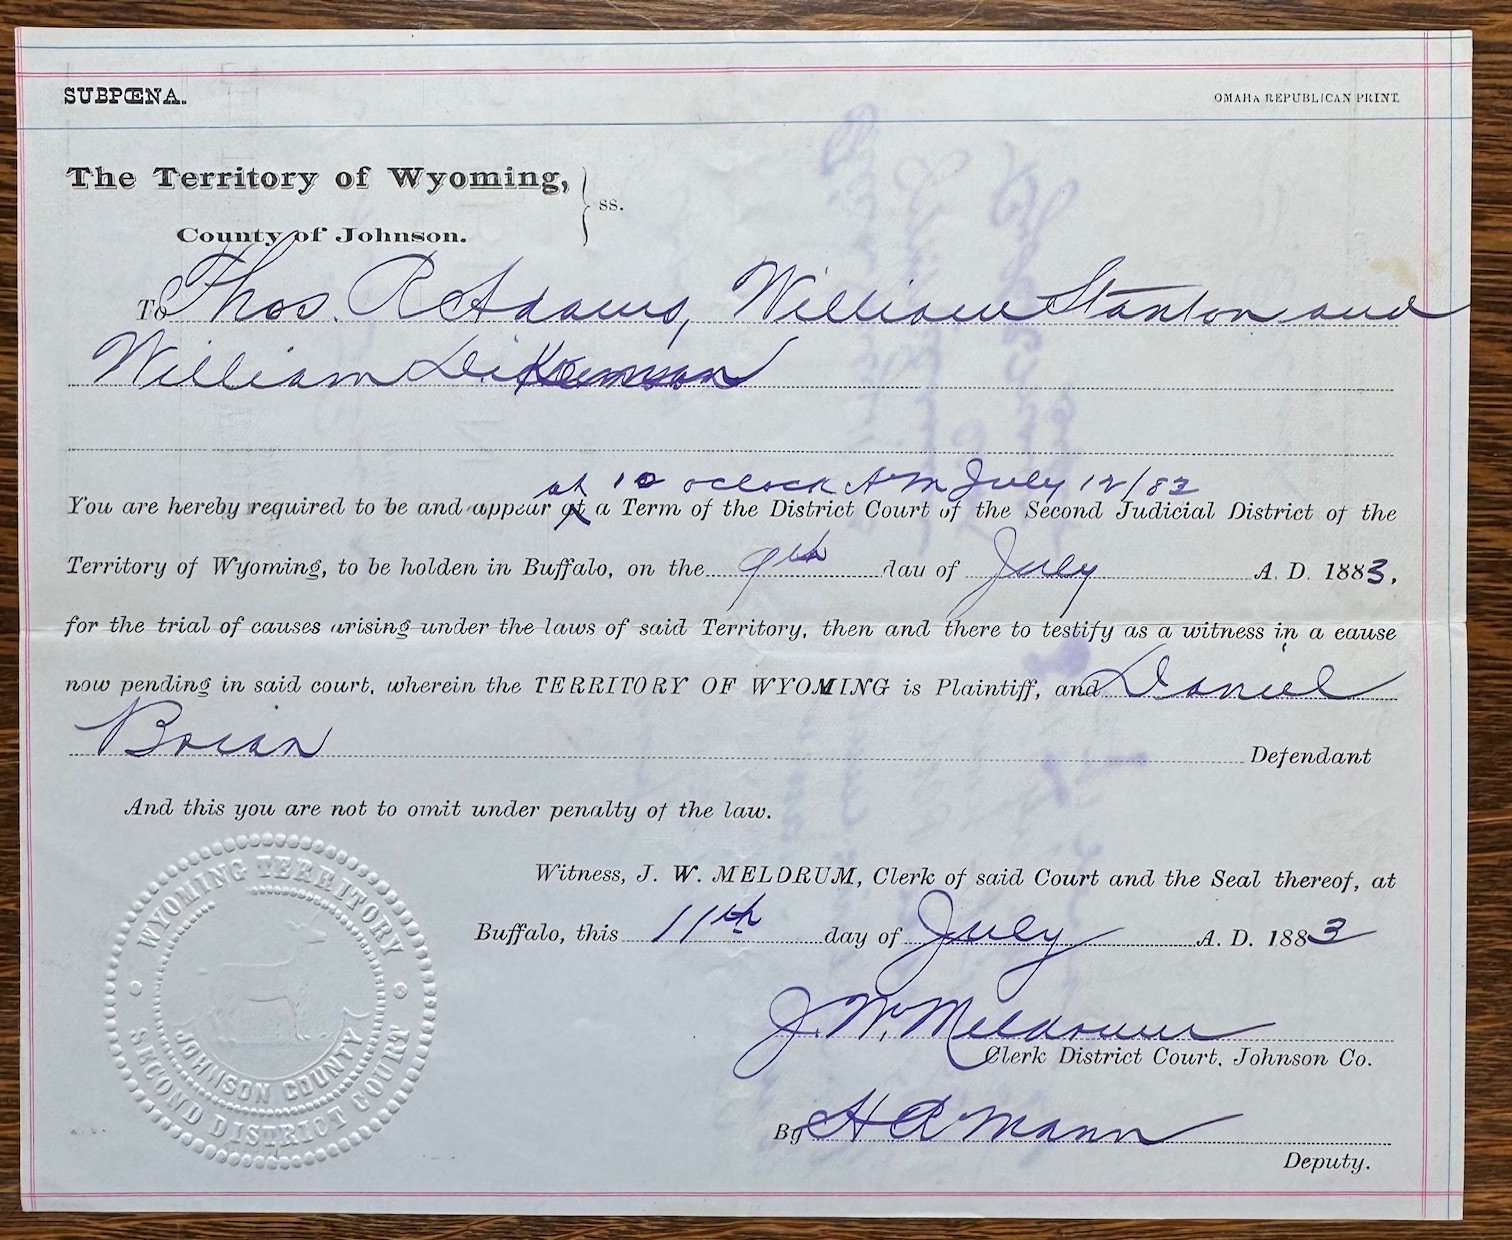 SUBPŒNA.
OMAHA REPUBLICAN PRINT.
The Territory of Wyoming,
County of Johnson.
} ss.
To Thos. R Adams, William Stanton and
William
at 10 oclock AM July 12/83
You are hereby required to be and appear at a Term of the District Court of the Second Judicial District of the
Territory of Wyoming, to be holden in Buffalo, on the 9th day of July A. D. 1883,
for the trial of causes arising under the laws of said Territory, then and there to testify as a witness in a cause
now pending in said court, wherein the TERRITORY OF WYOMING is Plaintiff, and Daniel
Brian Defendant
And this you are not to omit under penalty of the law.
Witness, J. W. MELDRUM, Clerk of said Court and the Seal thereof, at
Buffalo, this 11th day of July A. D. 1883
J. W. Meldrum
Clerk District Court, Johnson Co.
By H R Mann
Deputy.
WYOMING TERRITORY
JOHNSON COUNTY
SECOND DISTRICT COURT